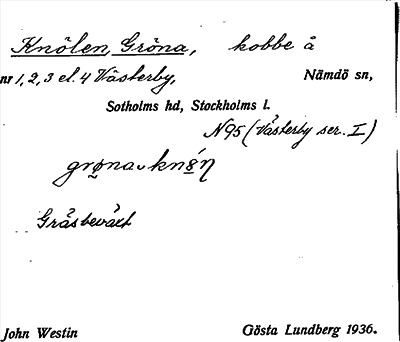 Knölen, Gröna, kobbe å
nr 1, 2, 3 el. 4 Västerby, Nämdö sn,
Sotholms hd, Stockholms l.
N95 (Västerby ser. I)
Gräsbeväxt
John Westin Gösta Lundberg 1936.